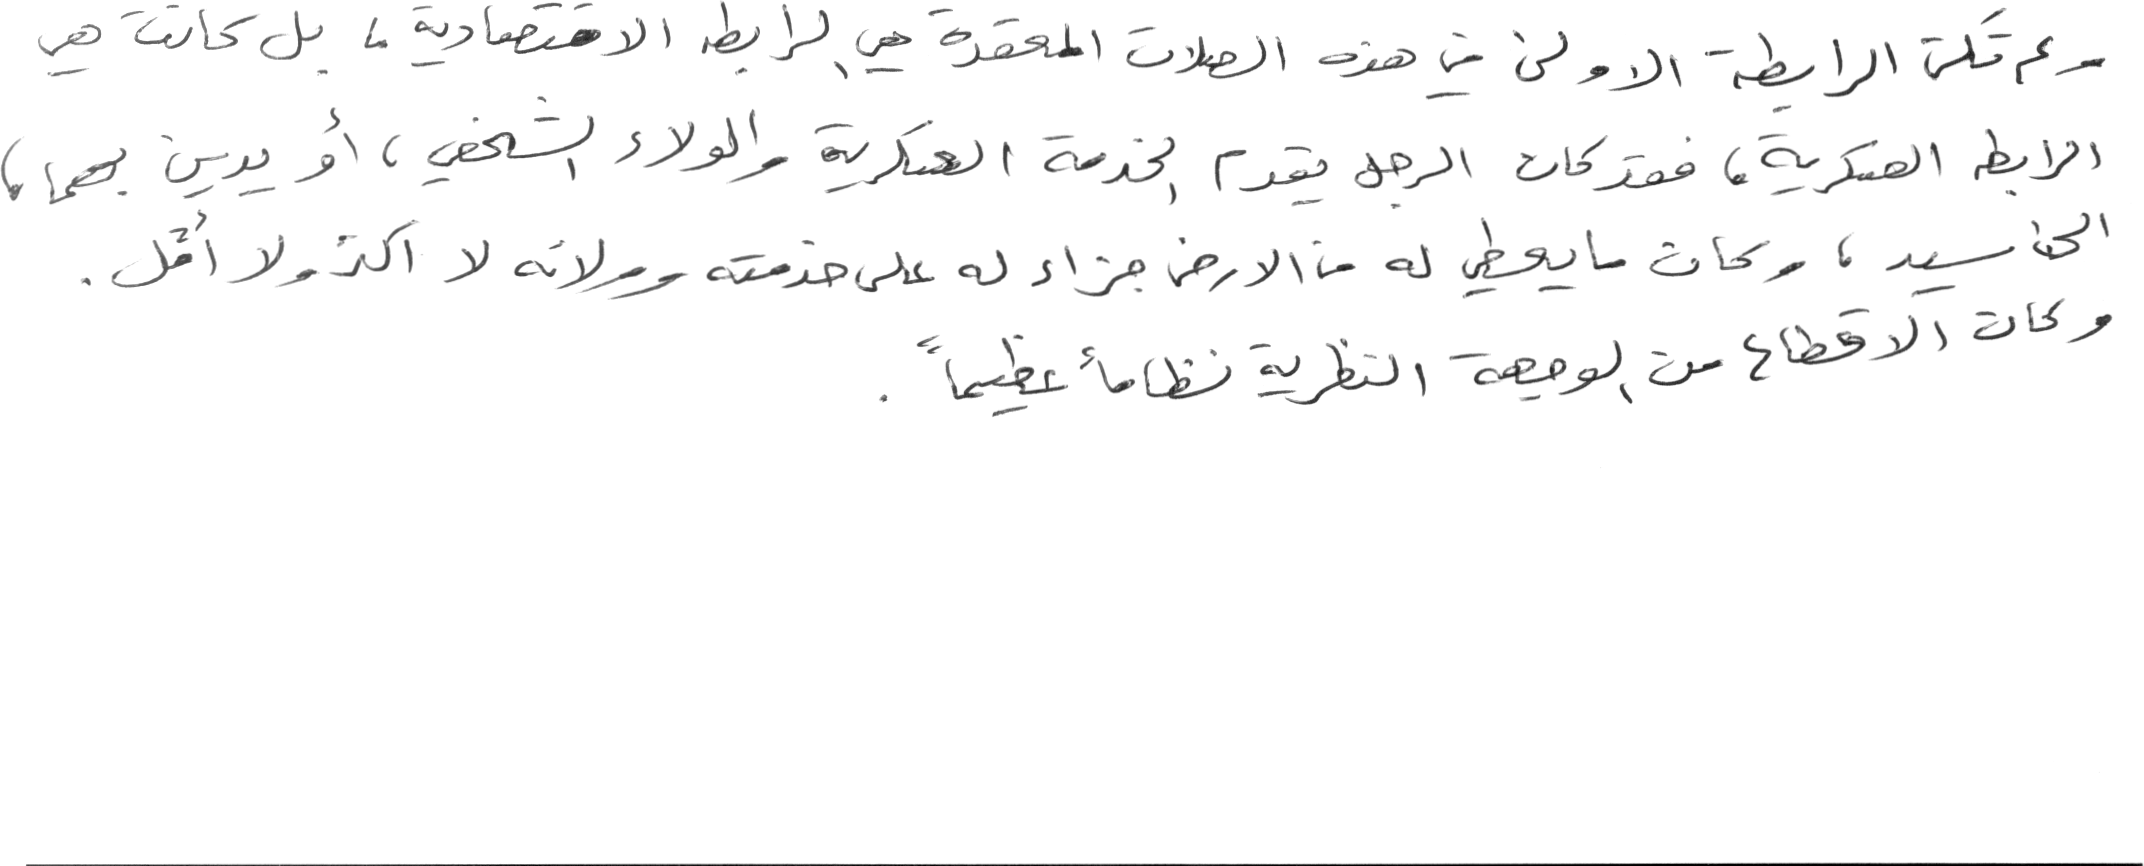 ولم تكن الرابطة الاولى في هذه الصلات المعقدة هي الرابطه الاقتصادية ، بل كانت هي
الرابطه العسكرية ، فقد كان الرجل يقدم الخدمة العسكرية والولاء الشخصي ، أو يدين بهما ،
الى سيد ، وكان ما يعطي له من الارض جزاء له على خدمته وولائه لا اكثر ولا أقل .
وكان الاقطاع من الوجهة النظرية نظاماً عظيماً .